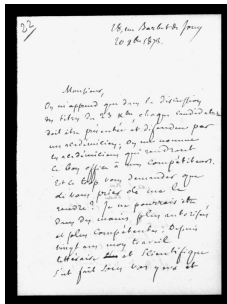 22
28, rue Barbet de Jouy
20 9bre 1876.
Monsieur,
On m'apprend que dans la discussion
des titres du 23 chaque candidature
doit être présentée et défendue par
un académicien; on me nomme
les académiciens qui rendront
ce bon office à mes compétiteurs.
Est-ce trop vous demander que
de vous prier de me le
rendre? Je ne pourrais être
dans des mains plus autorisées
et plus compétentes. Depuis
vingt ans, mon travail
littéraire et scientifique
s'est fait sous vos yeux et